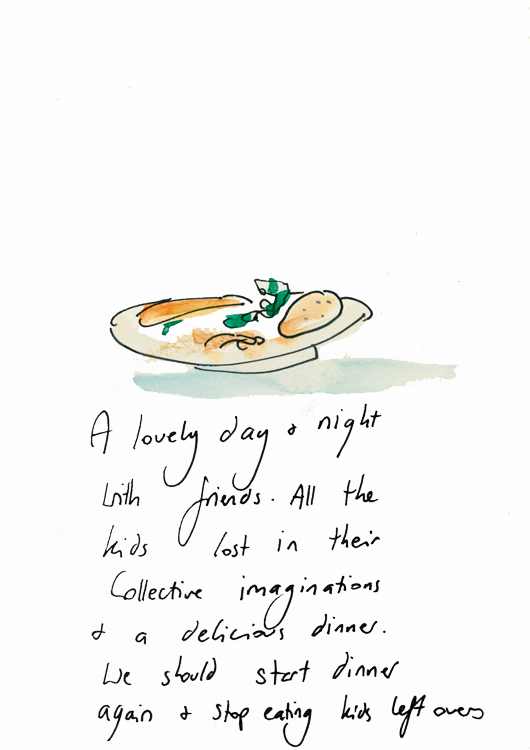 A lovely day & night
with friends. All the
kids lost in their
Collective imaginations
& a delicious dinner.
We should start dinner
again & stop eating kids left overs